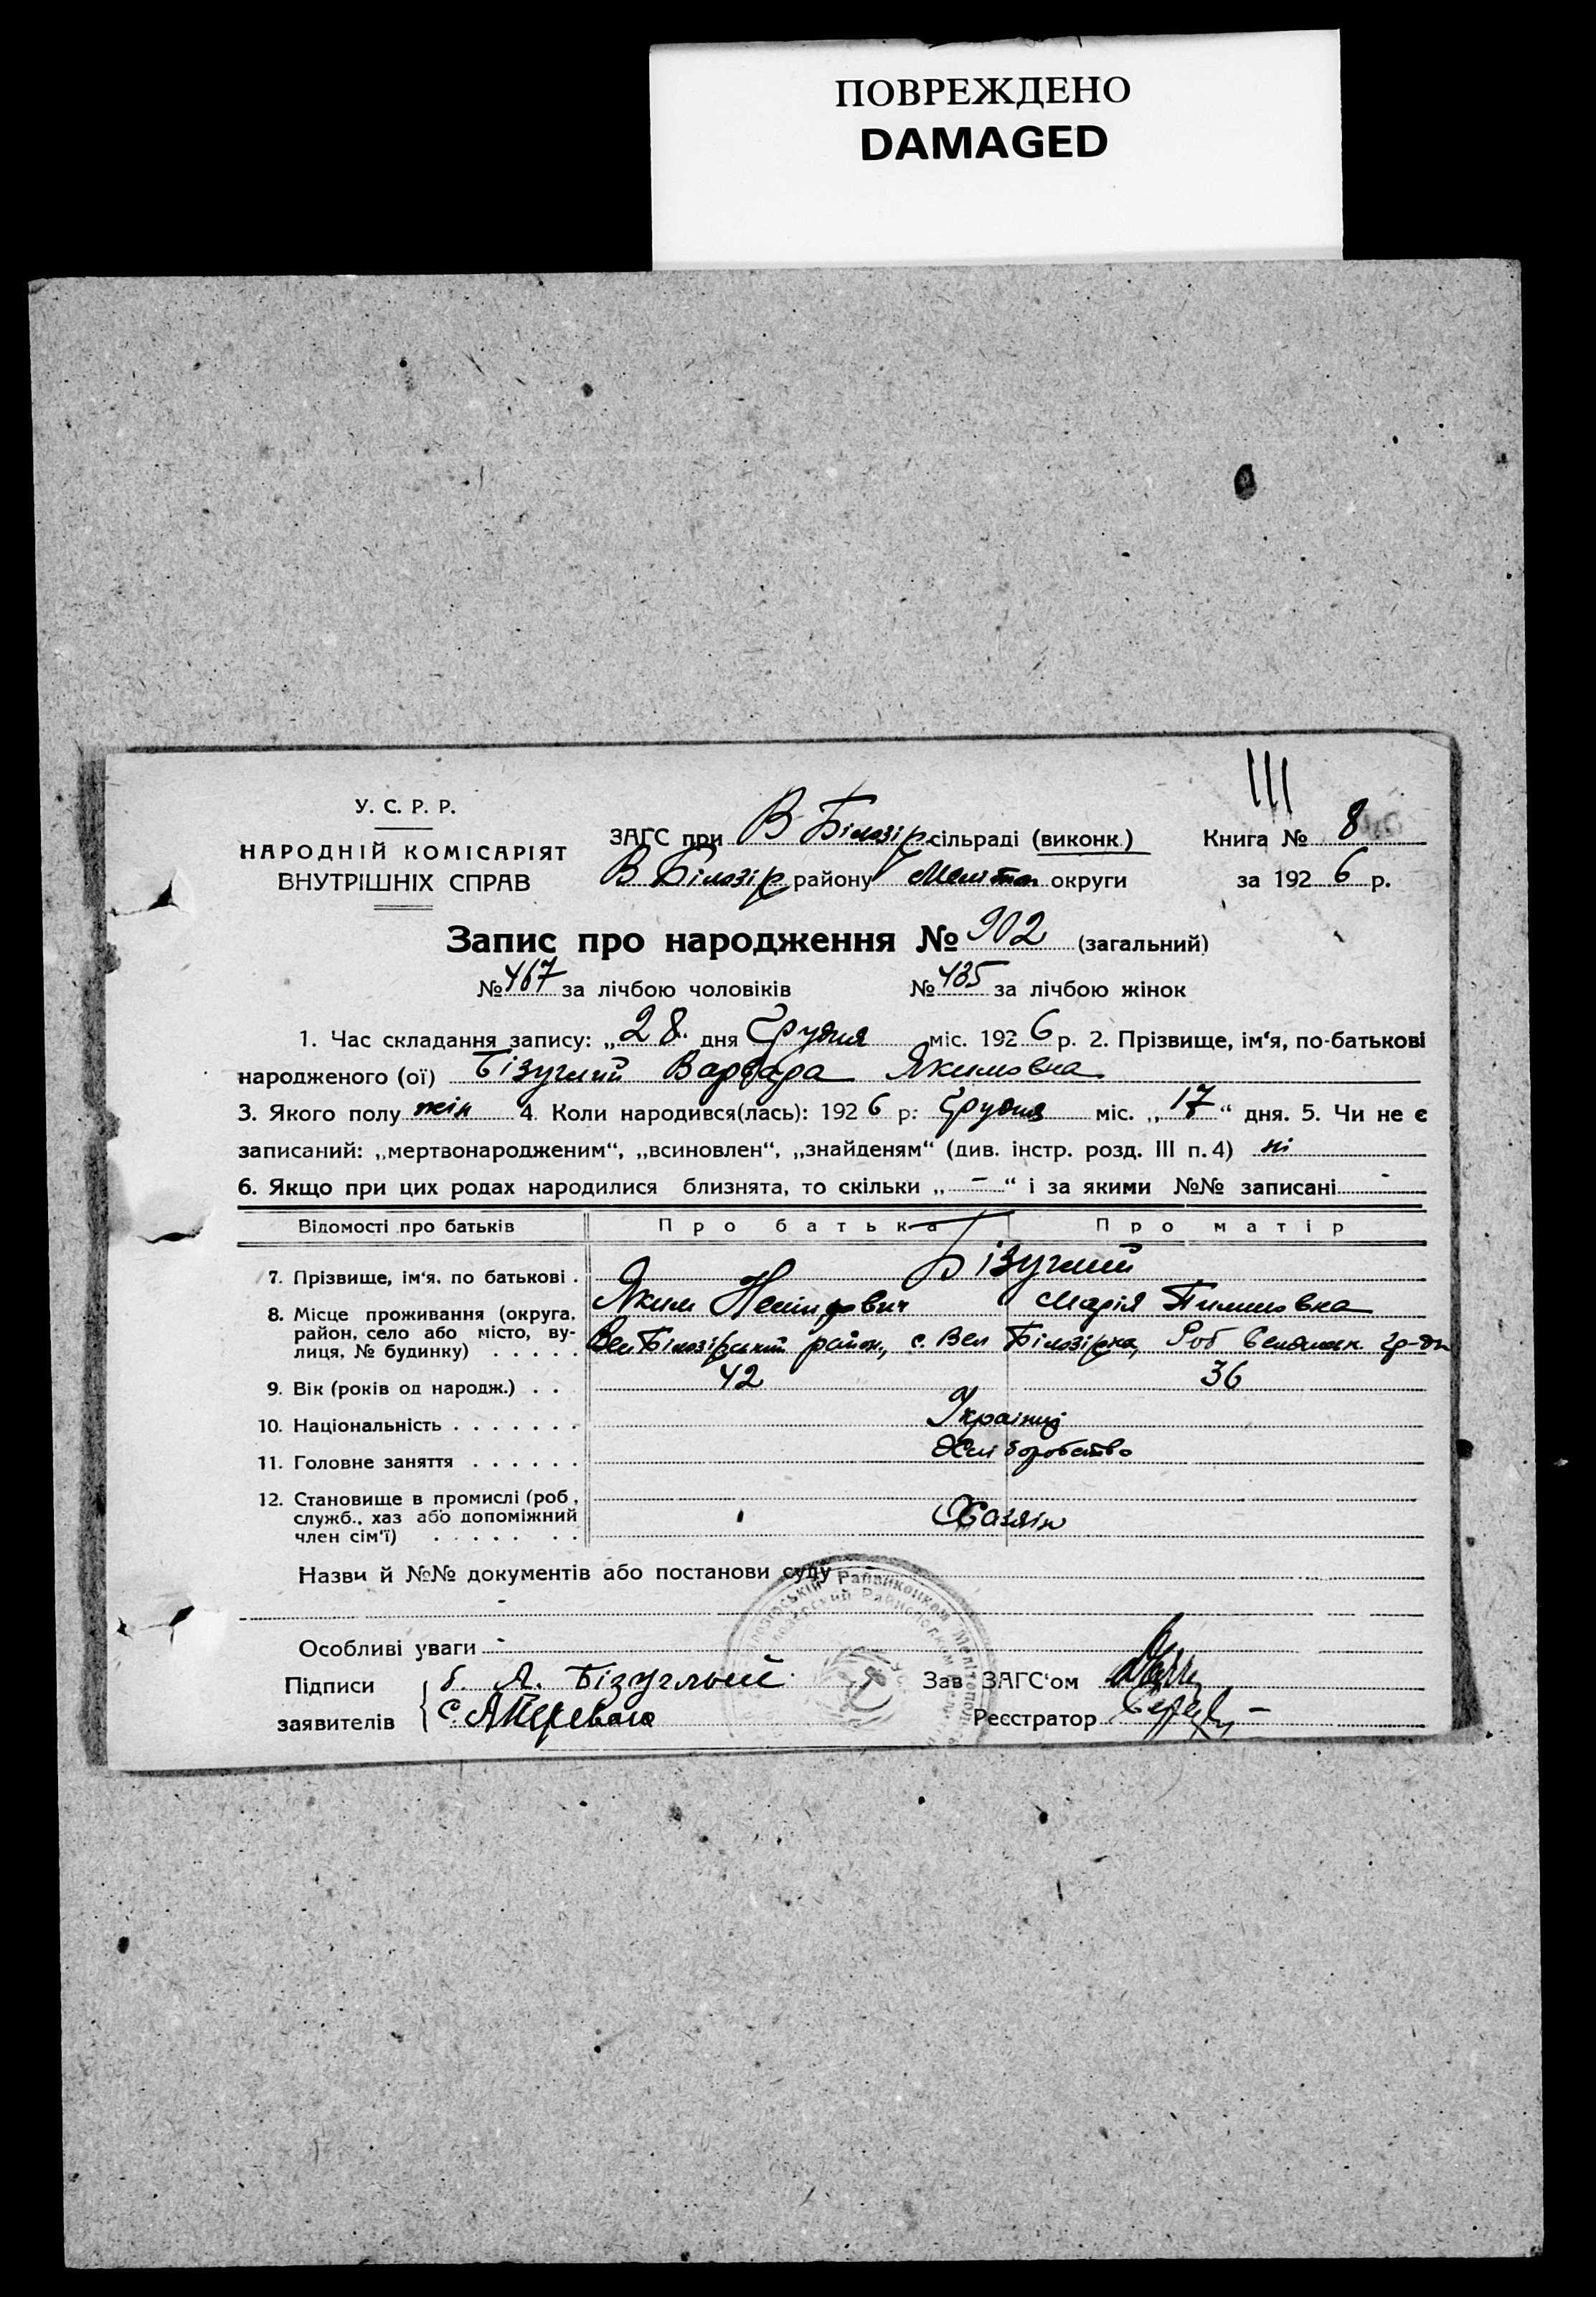 ПОВРЕЖДЕНО
DAMAGED
У. С. Р. Р.
НАРОДНІЙ КОМІСАРІЯТ
ВНУТРІШНІХ СПРАВ
ЗАГС при В Білозір. сільраді (виконк.)
В Білозір району Меліто округи
Книга № 8
за 1926 р.
Запис про народження № 902 (загальний)
№ 467 за лічбою чоловіків № 435 за лічбою жінок
1. Час складання запису: „28“ дня Грудня міс. 1926 р. 2. Прізвище, ім‘я, по-батькові
народженого (ої) Бізуглий Варвара Якимовна
3. Якого полу жін 4. Коли народився(лась): 1926 р. Грудня міс. „17“ дня. 5. Чи не є
записаний: „мертвонародженим“, „всиновлен“, „знайденям“ (див. інстр. розд. III п. 4) ні
6. Якщо при цих родах народилися близнята, то скільки „–“ і за якими №№ записані -
Відомості про батьків Про батька Про матір
7. Прізвище, ім‘я, по батькові . Бізуглий
Яким Марія Пилиповна
8. Місце проживання (округа, район, село або місто, вулиця, № будинку) . . . . . Вел Білозірський район, с. Вел Білозірка, Роб Селянськ. гр-дн
9. Вік (років од народж.) . . 42 36
10. Національність . . . . . . . Українці
11. Головне заняття . . . . . . Хліборобство
12. Становище в промислі (роб., служб., хаз або допоміжний член сім‘ї) . . . . . . . Хазяїн
Назви й №№ документів або постанови суду
-
Особливі уваги -
Підписи заявителів б. Я. Бізуглый
с.
Зав ЗАГС‘ом
Реєстратор